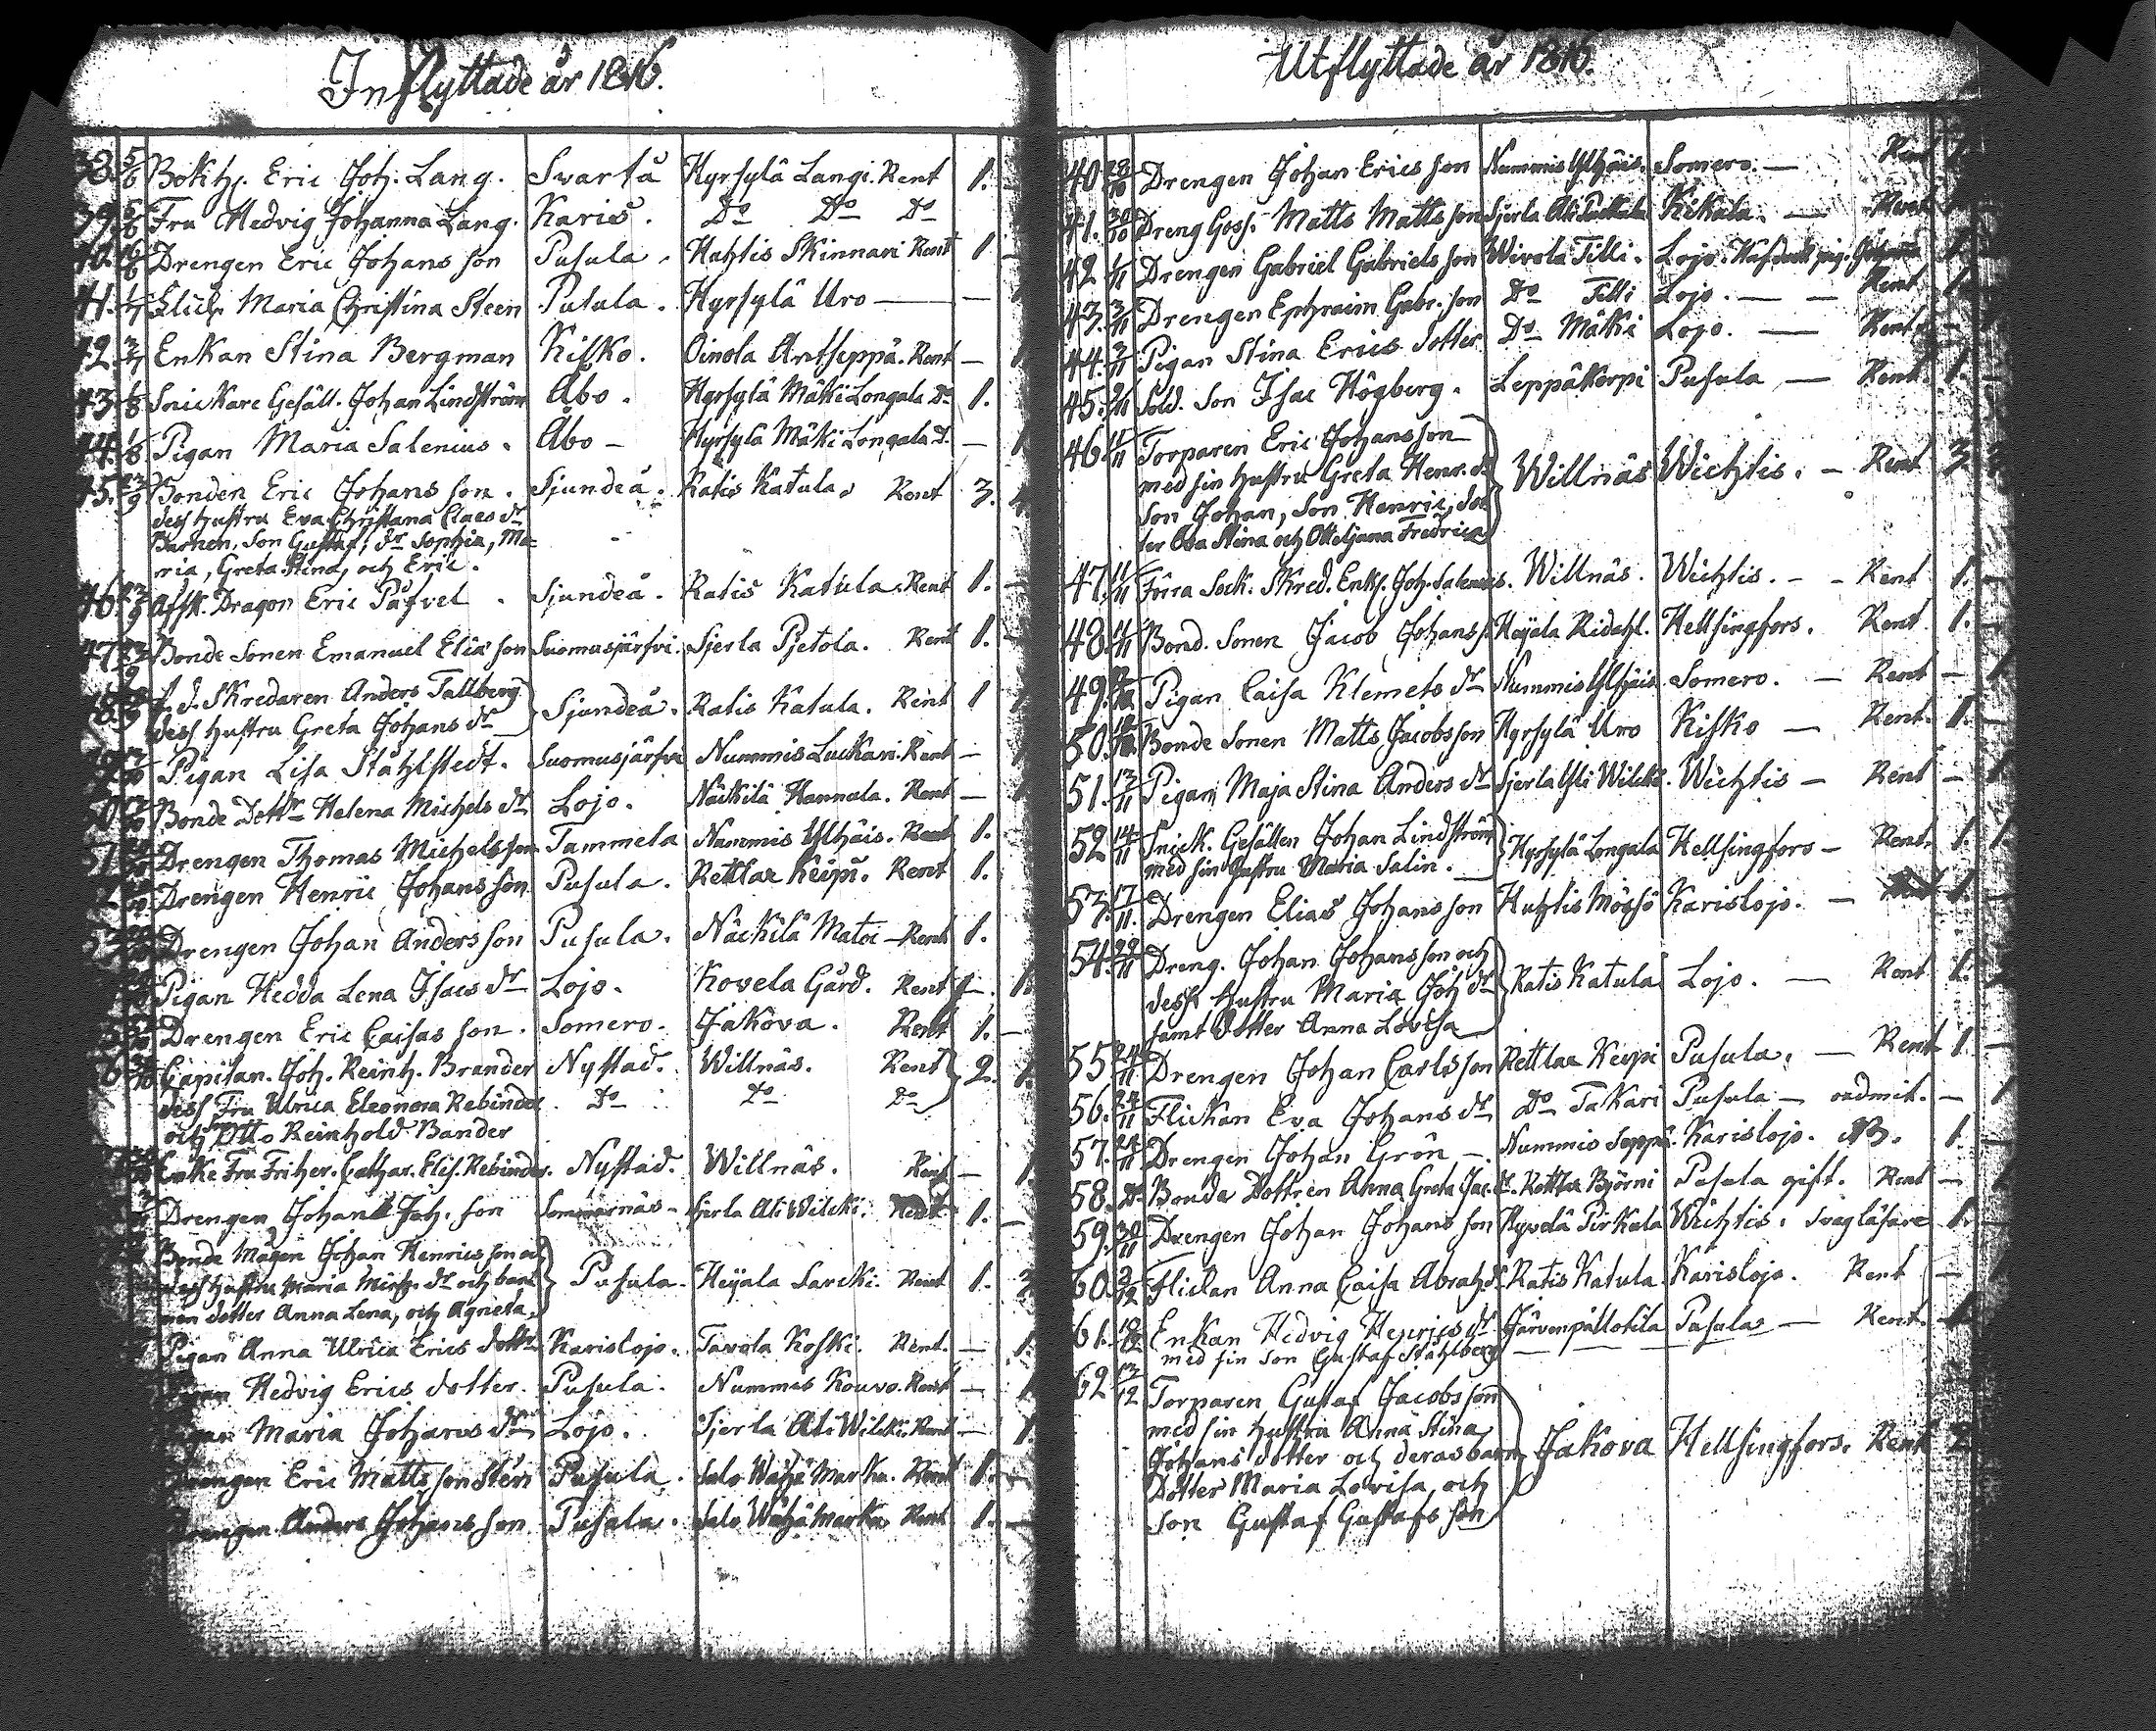 Inflyttade år 1816.
38. 5/6 Bokh. Eric Joh. Lang. Svartå Hyrsylä Langi. Rent 1. -
39. 5/6 Fru Hedvig Johanna Lang. Karis. Do Do Do
40. 16/6 Drengen Eric Johansson Pusula. Huhtis Skinnari Rent 1 -
41. 1/7 Maria Christina Steen Pusula. Hyrsylä Uro — —
42. 3/7 Enkan Stina Bergman Kisko. Oinola Antseppä. Rent — 1
43. 1/8 Snickare Gesäll. Johan Lindström Åbo. Hyrsylä Mäki Longala Do 1.
44. 1/8 Pigan Maria Salenius. Åbo - Hyrsylä Mäki Longala D. — 1
45. 23/9 Bonden Eric Johansson. Sjundeå. Ratis Katula. Rent 3. 4
dess hustru Eva Christiana Claes dr
Barnen, Son Gustaf, dr Sophia, Ma-
ria, Greta Stina, och Eric.
46. 23/9 Afsk. Dragon Eric Påfvel. Sjundeå. Ratis Katula. Rent 1. -
47. 23/9 Bonde Sonen Emanuel Eliæ son Suomusjärfvi. Sjerla Pjetola. Rent 1. -
48. f. d. Skredaren Anders Tallberg Sjundeå. Ratis Katula. Rent 1 1
dess hustru Greta Johans dr
49. Pigan Lisa Ståhlstedt. Suomusjärfvi Nummis Luckari. Rent — 1
50. Bonde Dottr Helena Michels dr Lojo. Näckilä Hannula. Rent — 1
51. Drengen Thomas Michelsson Tammela Nummis Ylhäis. Rent 1.
Drengen Henric Johansson Pusula. Rettlax Keipi. Rent 1.
Drengen Johan Andersson Pusula. Näckilä Matoi - Rent 1.
Pigan Hedda Lena Isacs dr Lojo. Kovela Gård. Rent — 1.
Drengen Eric Caisas son. Somero. Jakova. Rent 1. -
Capitan. Joh. Reinh. Brander Nystad. Willnäs. Rent 2. 1.
dess Fru Ulrica Eleonora Rebinder. Do Do Do
och Son Otto Reinhold Bander
Enke Fru Frih. Cathar. Elis. Rebinder. Nystad. Willnäs. Rent — 1.
Drengen Johan Joh. son Sommarnäs - Sjerla Ali Wilcki. Rent 1. -
Bonde Mågen Johan Henricsson och
dess hustru Maria Mich. dr och bar- Pusula. Heijala Sarcki. Rent 1. 3
nen dotter Anna Lena, och Agneta.
Pigan Anna Ulrica Erics dottr Karislojo. Tavola Koski. Rent. — 1.
Pigan Hedvig Erics dotter. Pusula. Nummis Kouvo. Rent — 1.
Pigan Maria Johans dr Lojo. Sjerla Ali Wilcki. Rent — 1.
Drengen Eric Mattsson Sten Pusula. Salo Wähä Marku. Rent 1. -
Drengen Anders Johansson Pusula. Salo Wähä Marku Rent 1. -
Utflyttade år 1816.
40. 28/10 Drengen Johan Ericsson Nummis Ylhäis. Somero. — Rent 1.
41. 30/10 Dreng Goss. Matts Mattsson Sjerla Ali Kikala. — Rent
42 1/11 Drengen Gabriel Gabrielsson Wivola Tilli. Lojo. 1.
43. 3/11 Drengen Ephraim Gabr. son Do Tilli Lojo. — Rent 1.
44. 3/11 Pigan Stina Erics dotter Do Mäkki Lojo. — Rent. -
45. 9/11 Sold. Son Isac Högberg. Leppäkorpi Pusula — Rent. 1. -
46. 11/11 Torparen Eric Johansson
med sin hustru Greta Henr. dr Willnäs Wichtis. - Rent 3. 3
Son Johan, Son Henric, dot-
ter Eva Stina och Ottiljana Fredrica
47. 11/11 Förra Sock. Skred. Enkl. Joh. Salenius. Willnäs. Wichtis. - - Rent 1. -
48. 11/11 Bond. Sonen Jacob Johanss. Heijala Ridahl. Helsingfors. Rent 1. -
49. Pigan Caisa Klemets dr Nummis Ylhäis. Somero. - Rent — 1
50. Bonde Sonen Matts Jacobsson Hyrsylä Uro Kisko — Rent. 1. -
51. 13/11 Pigan Maja Stina Anders dr Sjerla Yli Wilcki. Wichtis — Rent — 1
52 14/11 Snick. Gesällen Johan Lindström Hyrsylä Longala Hellsingfors — Rent. 1. 1.
med sin hustru Maria Salin.
53. 17/11. Drengen Elias Johansson Huhtis Mössö Karislojo. — 1. -
54. Dreng. Johan Johansson och
dess hustru Maria Joh dr Ratis Katula Lojo. — Rent 1.
samt Dotter Anna Lovisa
55 24/11 Drengen Johan Carlsson Rettlax Keipi Pusula. — Rent 1. -
56. 24/11 Flickan Eva Johans dr Do Takari Pusula — oadmit. — 1
57. 24/11 Drengen Johan Grön —. Nummis Seppä. Karislojo. NB. 1. -
58. Do Bonda Dottren Anna Greta Isac. dr. Rettlax Björni Pusula gift. Rent —
59. 30/11 Drengen Johan Johansson Hyvelä Pirkala Wichtis. svag läsare 1.
60. 2/12 Flickan Anna Caisa Abrah. dr Ratis Katula. Karislojo. Rent —
61. Enkan Hedvig Henrics dr Järvenpä Pusula — Rent. 1
med sin Son Gustaf Ståhlberg
62 13/12 Torparen Gustaf Jacobsson
med sin hustru Anna Stina
Johans dotter och deras barn Jakova Hellsingfors. Rent 2
Dotter Maria Lovisa, och
Son Gustaf Gustafsson